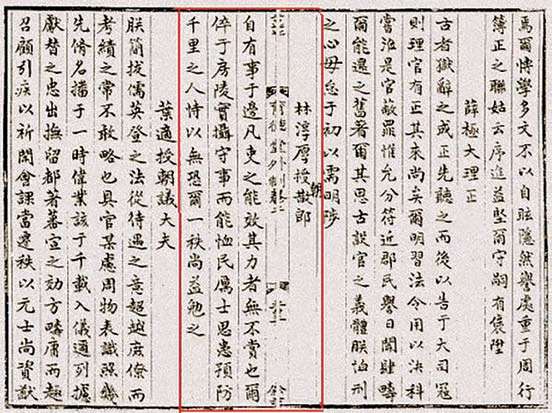 焉爾博學多文不以自眩隱然譽處重于周行
簿正之聯姑云序進益堅爾守嗣有褒陞
薛極大理正
古者獄辭之成正先聽之而後以告于大司寇
則理官有正其來尚矣爾明習法令用以決科
嘗涖是官蔽罪惟允分符近郡民譽日聞肆疇
爾能還之舊著爾其思古設官之義體朕怕刑
之心毋怠于初以需明陟
林淳厚授朝散郎
育德堂外制卷二
自有事于邊凡吏之能效其力者無不賞也爾
倅于房陵實攝守事而能恤民厲士思患預防
千里之人恃以無恐爾一秩尚益勉之
葉適授朝議大夫
朕簡拔儒英登之法從待遇之意超越庶僚而
考績之常不敢略也具官某慮周物表識照幾
先脩名譪于一時偉業該于千載入儀通列據
獻替之忠出撫留都著蕃宣之効方疇庸而趣
召顧引疾以祈閑會課當遷秩以元士尚資猷